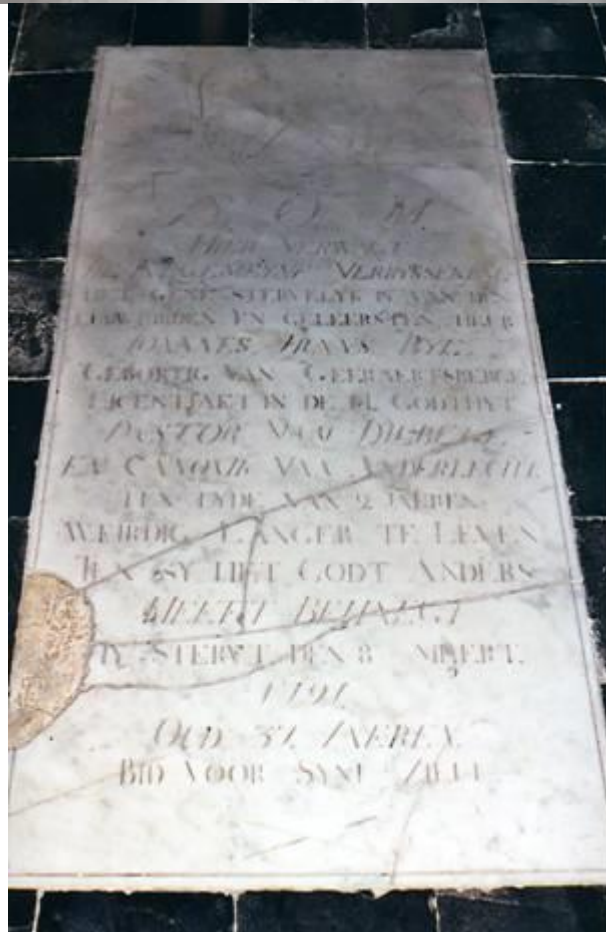 D. O. M.
HIER VERWAGT
VERRYSSENISSE
HET GENE STERVELYK IS VAN DEN
EERWERDEN EN GELEERSTEN HEER
IOANNES FRANS BYL
GEBORTIG VAN GEERAERTSBERGE
LICENTIAET IN DE H. GODTHYT
PASTOR VAN DILBEEK
EN CANONIK VAN ANDERLECHT
TEN TYDE VAN 2 IAEREN
WEIRDIG LANGER TE LEVEN
TEN SY HET GODT ANDERS
HEEFT BEHAEGT
HY STERFT DEN 8 MEERT
1791
OUD 37 IAEREN
BID VOOR SYNE ZIELE